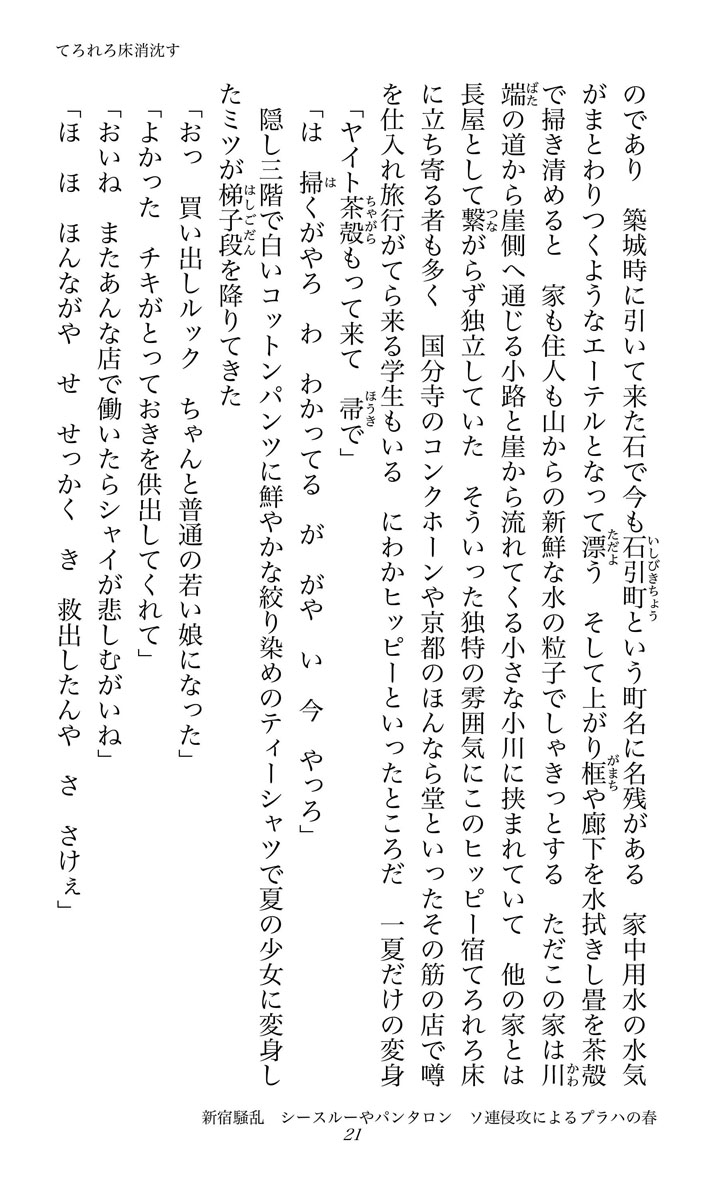 てろれろ床消沈す
のであり　築城時に引いて来た石で今も石引町という町名に名残がある　家中用水の水気
がまとわりつくようなエーテルとなって漂う　そして上がり框や廊下を水拭きし畳を茶殻
で掃き清めると　家も住人も山からの新鮮な水の粒子でしゃきっとする　ただこの家は川
端の道から崖側へ通じる小路と崖から流れてくる小さな小川に挟まれていて　他の家とは
長屋として繋がらず独立していた　そういった独特の雰囲気にこのヒッピー宿てろれろ床
に立ち寄る者も多く　国分寺のコンクホーンや京都のほんなら堂といったその筋の店で噂
を仕入れ旅行がてら来る学生もいる　にわかヒッピーといったところだ　一夏だけの変身
「ヤイト茶殻もって来て　帚で」
「は　掃くがやろ　わ　わかってる　が　がや　い　今　やっろ」
隠し三階で白いコットンパンツに鮮やかな絞り染めのティーシャツで夏の少女に変身し
たミツが梯子段を降りてきた
「おっ　買い出しルック　ちゃんと普通の若い娘になった」
「よかった　チキがとっておきを供出してくれて」
「おいね　またあんな店で働いたらシャイが悲しむがいね」
「ほ　ほ　ほんながや　せ　せっかく　き　救出したんや　さ　さけぇ」
新宿騒乱　シースルーやパンタロン　ソ連侵攻によるプラハの春
21